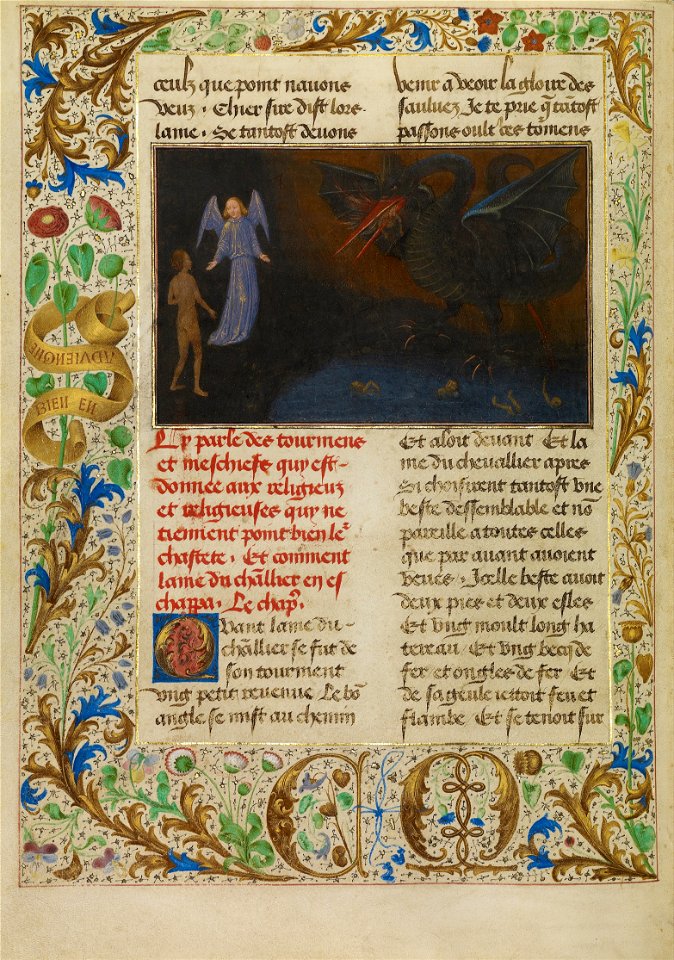 ceulz que point nauons
veuz . Chier sire dist lors
lame . Se tantost deuons
venir a veoir la gloire des
sauluez Je te prie q̃ tãtost
passons oult᷑ ces to᷑mens
BIEN EN
ADVIENGNE
Cy parle des tourmens
et meschiefz quy est
donnee aux religieux
et religieuses quy ne
tiennent point bien le᷑
chastete . Et comment
lame du chãllier en es
chappa . Le chap᷑.
Quant lame du
chãllier se fut de
son tourment
vng petit reuenue Le bõ
angle se mist au chemin
Et aloit deuant Et la
me du cheuallier apres
Si choisirent tantost vne
beste dessemblable et nõ
pareille a toutes celles
que par auant auoient
veues . Jcelle beste auoit
deux pies et deux esles
Et vng moult long ha
tereau Et vng becq de
fer et ongles de fer Et
de sa geule iettoit feu et
flambe Et se tenoit sur
C M